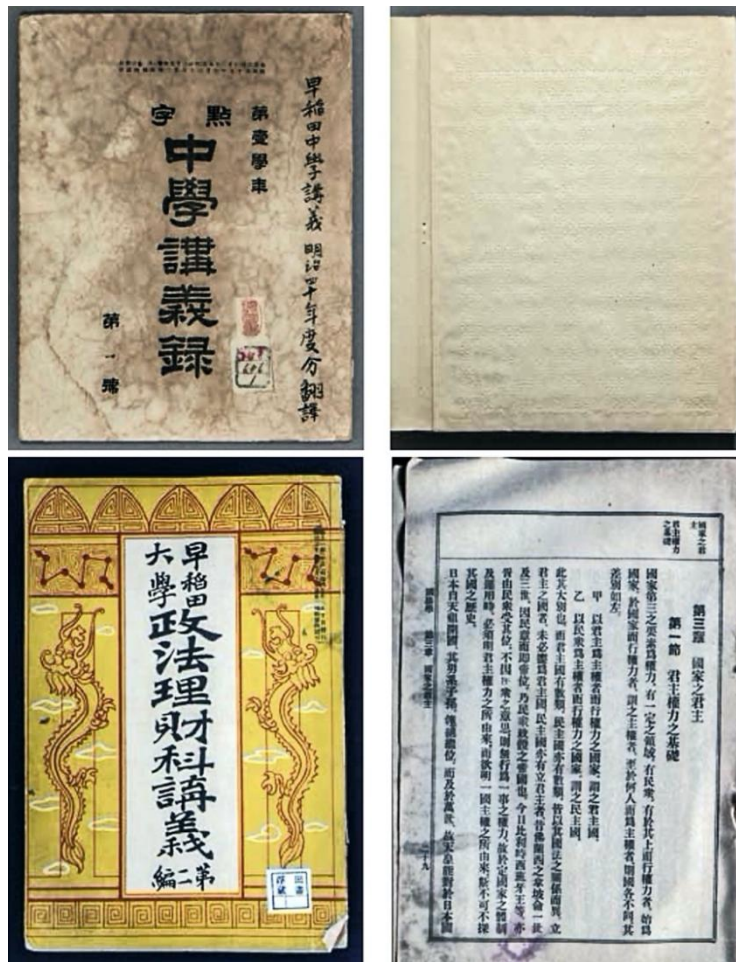 早稻田中學講義 明治四十年度分翻譯
第壹學年
點字
中學講義録
第一號
早稻田
大學
政法理財科講義
第二編
圖書
國家之君主
君主權力之基礎
第三章 國家之君主
第一節 君主權力之基礎
國家第三之要素爲權力、有一定之領域、有民衆、有於其上而行權力者、始爲
國家、於國家而行權力者、謂之主權者、至於何人而爲主權者、則國各不同、其
差別如左、
甲 以君主爲主權者而行權力之國家、謂之君主國、
乙 以民衆爲主權者而行權力之國家、謂之民主國、
此其大別也、而君主國有數類、民主國亦有數類、皆以其國法之關係而異、立
君主之國者、未必盡爲君主國、民主國亦有立君主者、昔佛蘭西之拿坡侖一世
及三世、因民意而卽帝位、乃民衆政體之帝國也、今日比利時西班牙王等、亦
皆由民衆受其位、不因民衆之意思、則無行爲一事之權力、故於定國家之體制
及運用時、必須明君主權力之所由來、而欲明一國主權之所由來、不可不探
其國之歷史、
日本自天祖開國、其男系子孫、繼續
國法學 第三章 國家之君主
二十九